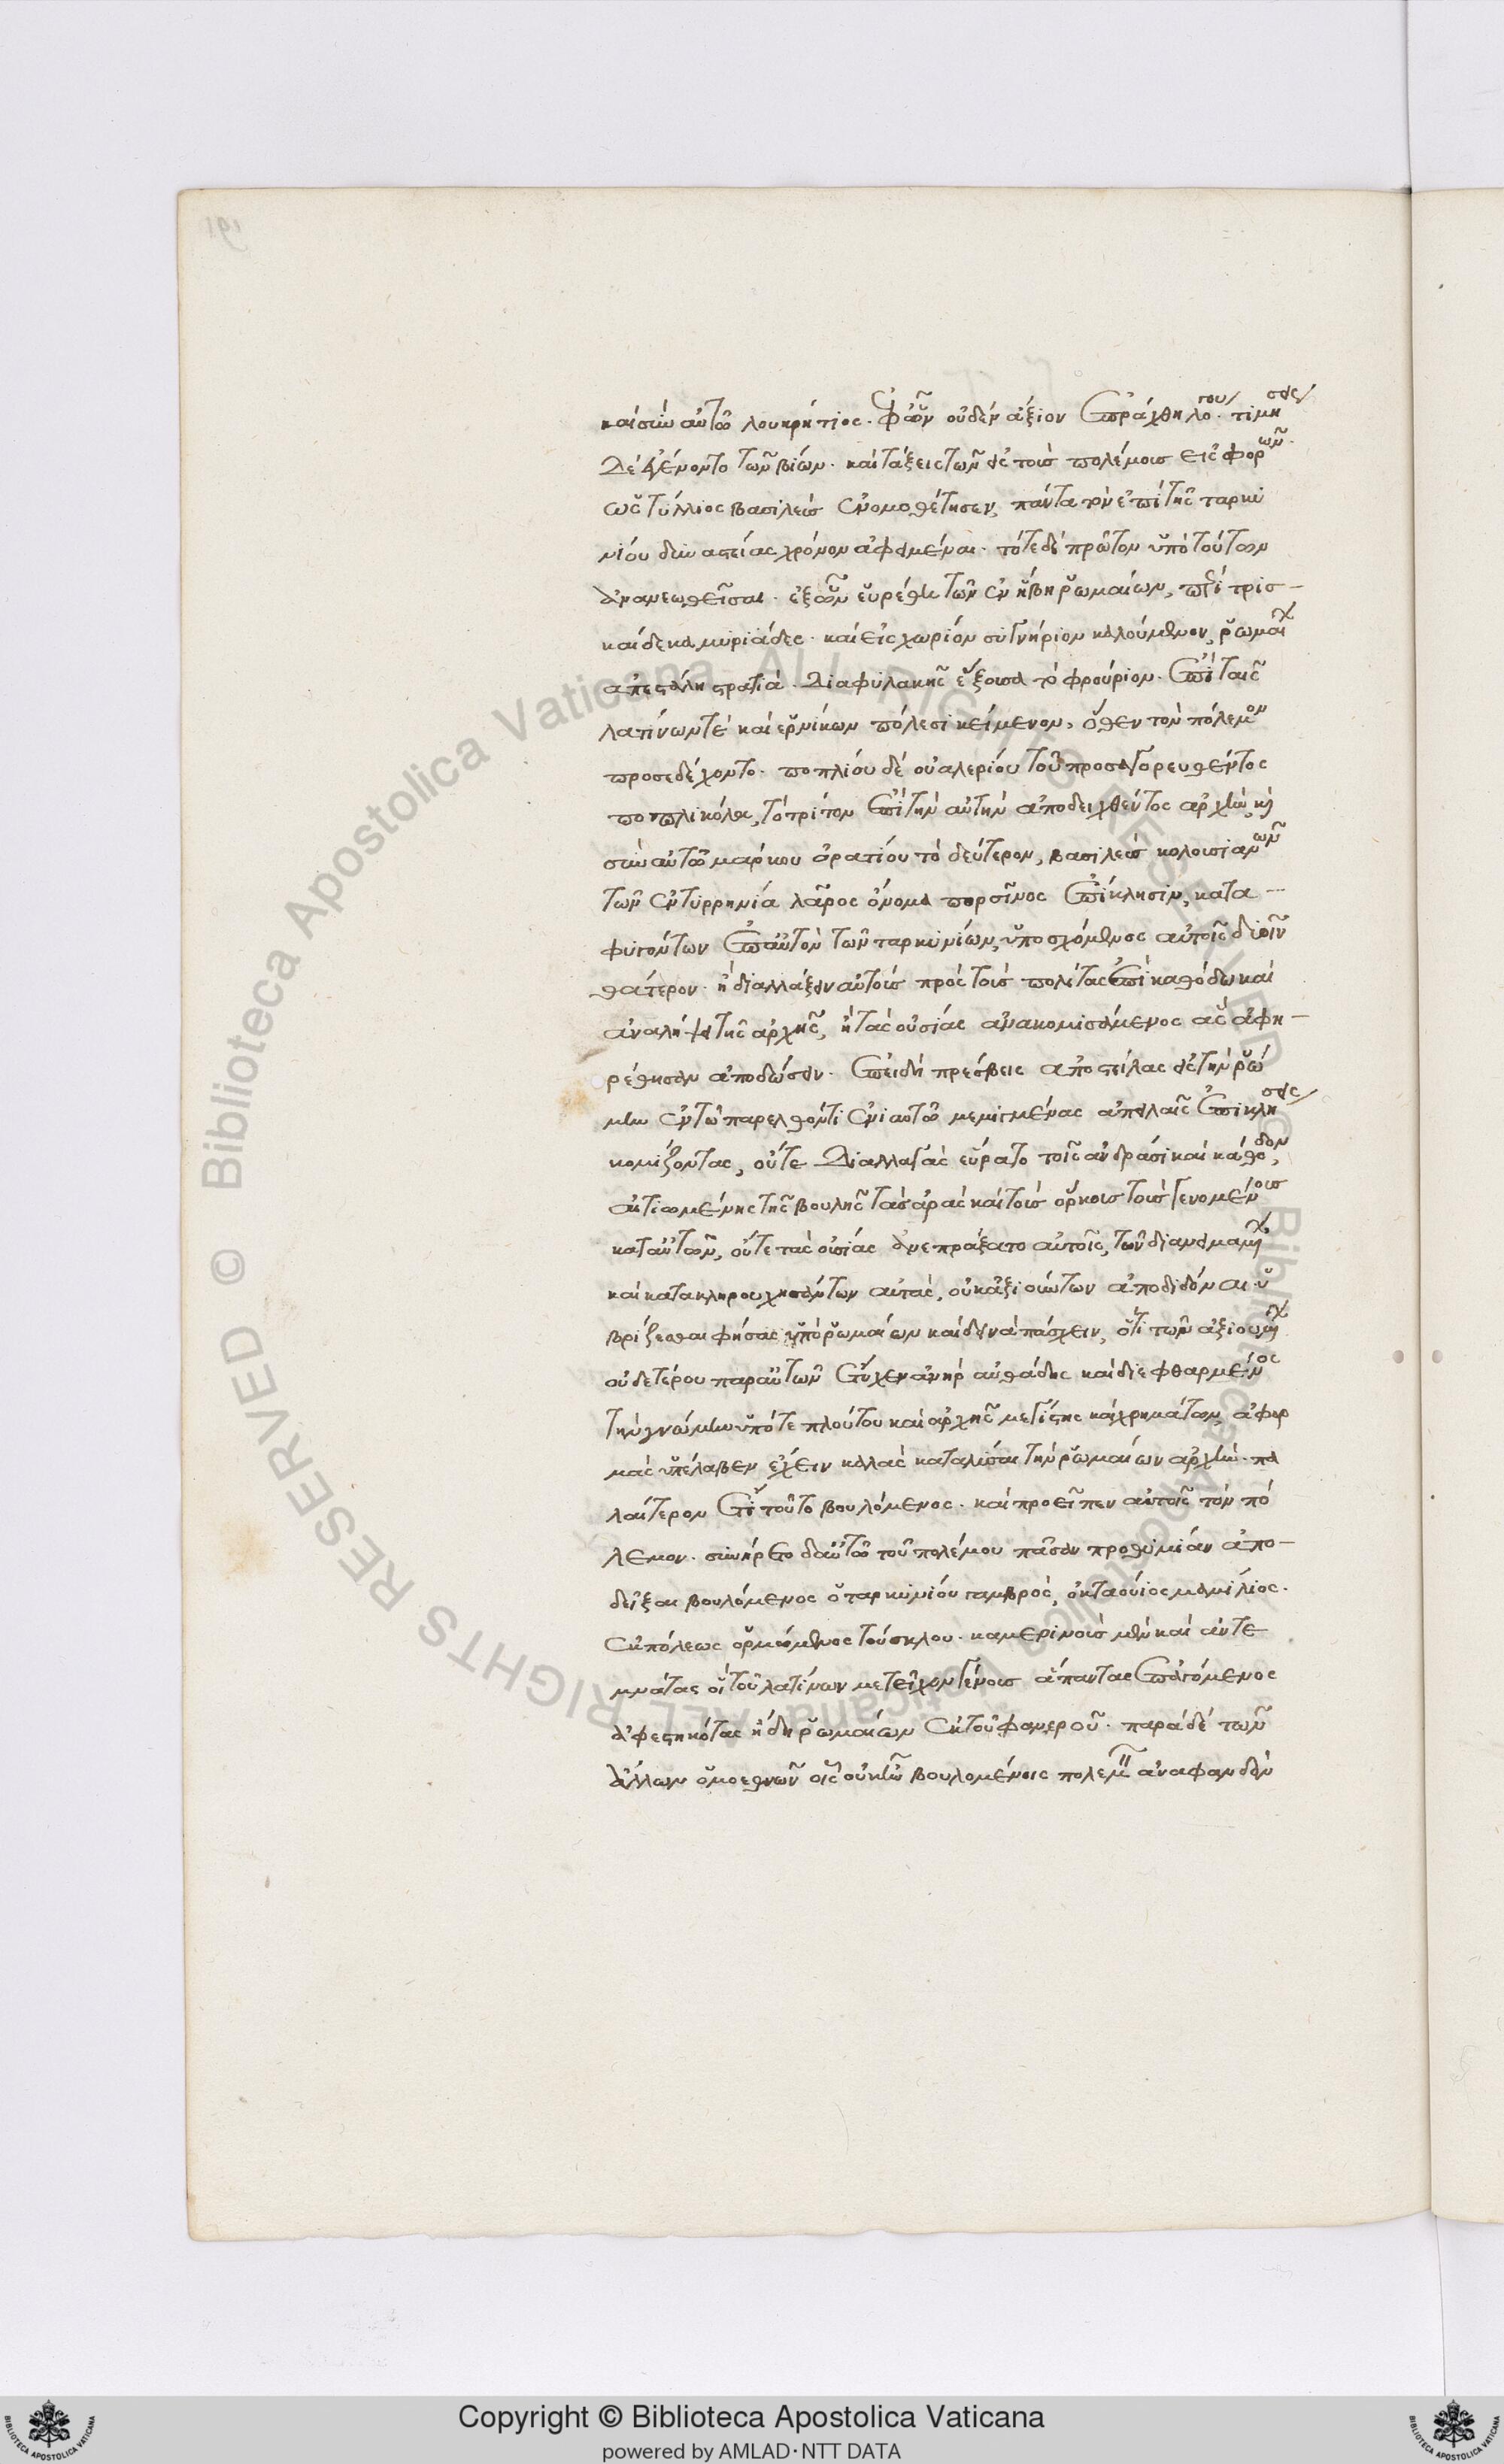 καὶ σὺν αὐτῶ λουκρήτιος. ἐφ' ὧν οὐδὲν ἄξιον ἐπράχθη λόγου. τιμήσεις
δὲ ἐγένοντο τῶν βίων. καὶ τάξεις τῶν εἰς τοὺς πολέμους εἰσφορῶν.
ὡς τύλλιος βασιλεὺς ἐνομοθέτησεν, πάντα τὸν ἐπὶ τῆς ταρκυ
νίου δυναστείας χρόνον ἀφειμέναι. τότε δὲ πρῶτον ὑπὸ τούτων
ἀνανεωθεῖσαι. ἐξ ὧν εὑρέθη τῶν ἐν ἥβη ῥωμαίων, περὶ τρισ-
καίδεκα μυριάδες. καὶ εἰς χωρίον συγνήριον καλούμενον, ῥωμαίων
ἀπεστάλη στρατιὰ. διὰ φυλακῆς ἕξουσα τὸ φρούριον. ἐπὶ ταῖς
λατίνων τὲ καὶ ἑρνίκων πόλεσι κείμενον, ὅθεν τὸν πόλεμον
προσεδέχοντο. ποπλίου δὲ οὐαλερίου τοῦ προσαγορευθέντος
ποπλικόλα, τὸ τρίτον ἐπὶ τὴν αὐτὴν ἀποδειχθέντος ἀρχὴν, καὶ
σὺν αὐτῶ μάρκου ὁρατίου τὸ δεύτερον, βασιλεὺς κλουσιανῶν
τῶν ἐν τυρρηνία λᾶρος ὄνομα πορσῖνος ἐπίκλησιν, κατα-
φυγόντων ἐπ' αὐτὸν τῶν ταρκυνίων, ὑποσχόμενος αὐτοῖς δυοῖν
θάτερον. ἢ διαλλάξειν αὐτοὺς πρὸς τοὺς πολίτας ἐπὶ καθόδω καὶ
ἀναλήψει τῆς ἀρχῆς, ἢ τὰς οὐσίας ἀνακομισάμενος ἃς ἀφη-
ρέθησαν ἀποδώσειν. ἐπειδὴ πρέσβεις ἀποστείλας εἰς τὴν ῥώ
μην ἐν τῶ παρελθόντι ἐνιαυτῶ μεμιγμένας ἀπειλαῖς ἐπικλήσεις
κομίζοντας, οὔτε διαλλαγὰς εὕρατο τοῖς ἀνδράσι καὶ κάθοδον,
αἰτιωμένης τῆς βουλῆς τὰς ἀρὰς καὶ τοὺς ὅρκους τοὺς γενομένους
κατ' αὐτῶν, οὔτε τὰς οὐσίας ἀνεπράξατο αὐτοῖς, τῶν διανειμαμένων
καὶ κατακληρουχησάντων αὐτὰς, οὐκ ἀξιούντων ἀποδιδόναι. ὑ
βρίζεσθαι φήσας ὑπὸ ῥωμαίων καὶ δεινὰ πάσχειν, ὅτι τῶν ἀξιουμένων
οὐδετέρου παρ' αὐτῶν ἔτυχεν ἀνὴρ αὐθάδης καὶ διεφθαρμένος
τὴν γνώμην ὑπό τε πλούτου καὶ ἀρχῆς μεγίστης καὶ χρημάτων, ἀφορ
μὰς ὑπέλαβεν ἔχειν καλὰς καταλῦσαι τὴν ῥωμαίων ἀρχὴν. πα
λαίτερον ἔτι τοῦτο βουλόμενος. καὶ προεῖπεν αὐτοῖς τὸν πό
λεμον. συνήρετο δ' αὐτῶ τοῦ πολέμου πᾶσαν προθυμίαν ἀπο-
δεῖξαι βουλόμενος ὁ ταρκυνίου γαμβρὸς, ὀκταούιος μαμίλιος.
ἐκ πόλεως ὁρμώμενος τούσκλου. καμερίνους μὲν καὶ ἀντε
μνάτας οἳ τοῦ λατίνων μετεῖχον γένους ἅπαντας ἐπαγόμενος
ἀφεστηκότας ἤδη ῥωμαίων ἐκ τοῦ φανεροῦ. παρὰ δὲ τῶν
ἄλλων ὁμοεθνῶν οἷς οὐκ ἦν βουλομένοις πολεμεῖν ἀναφανδὸν